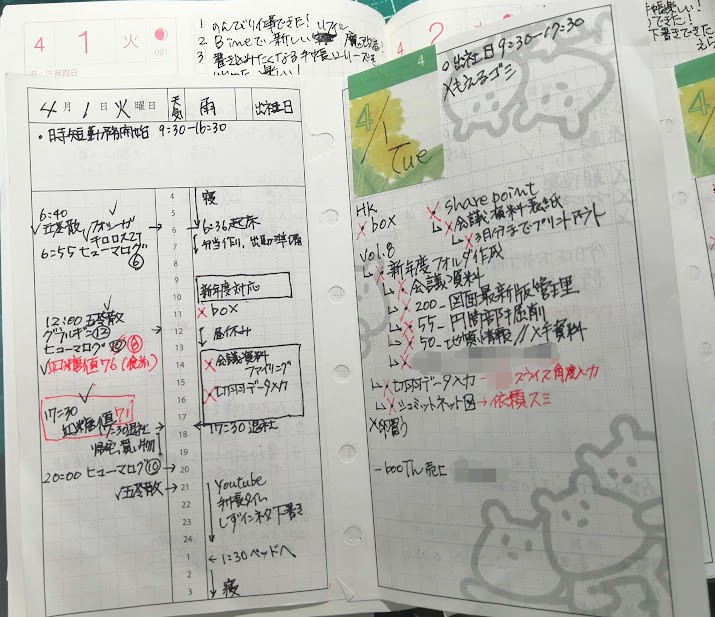 4 1 火
091
1 のんびり仕事できた！
2 Bimeで新しい
3 書き込みたくなる手帳シリーズを
4 2
下書きできた
4月1日火曜日 天気 雨 出社日
・時短勤務開始 9:30-16:30
6:40
五苓散
6:55 ヒューマログ
⑥
12:00 五苓散
グラルギン⑫
ヒューマログ
血糖値76
17:30
血糖値71
17:30退社
帰宅、買い物
20:00 ヒューマログ⑩
五苓散
4
5
6
7
8
9
10
11
12
13
14
15
16
17
18
19
20
21
22
23
24
1
2
3
寝
6:36起床
弁当作り、出勤準備
新年度対応
× box
昼休み
× 会議資料
ファイリング
× 切羽データ入力
17:30退社
Youtube
手帳タイム
しずインネタ下書き
1:30ベッドへ
寝
○出社日9:30-17:30
×もえるゴミ
4/1
Tue
HK
× box
× share point
× 会議資料表紙
× 3日分までプリントアウト
Vol.8
× 新年度フォルダ作成
× 会議資料
× 200_図面最新版管理
× 55_円筒部掘削
× 50_地質情報 // ×手資料
× 切羽データ入力 スライス角度入力
× シュミットネット図→依頼スミ
- booTh 売上